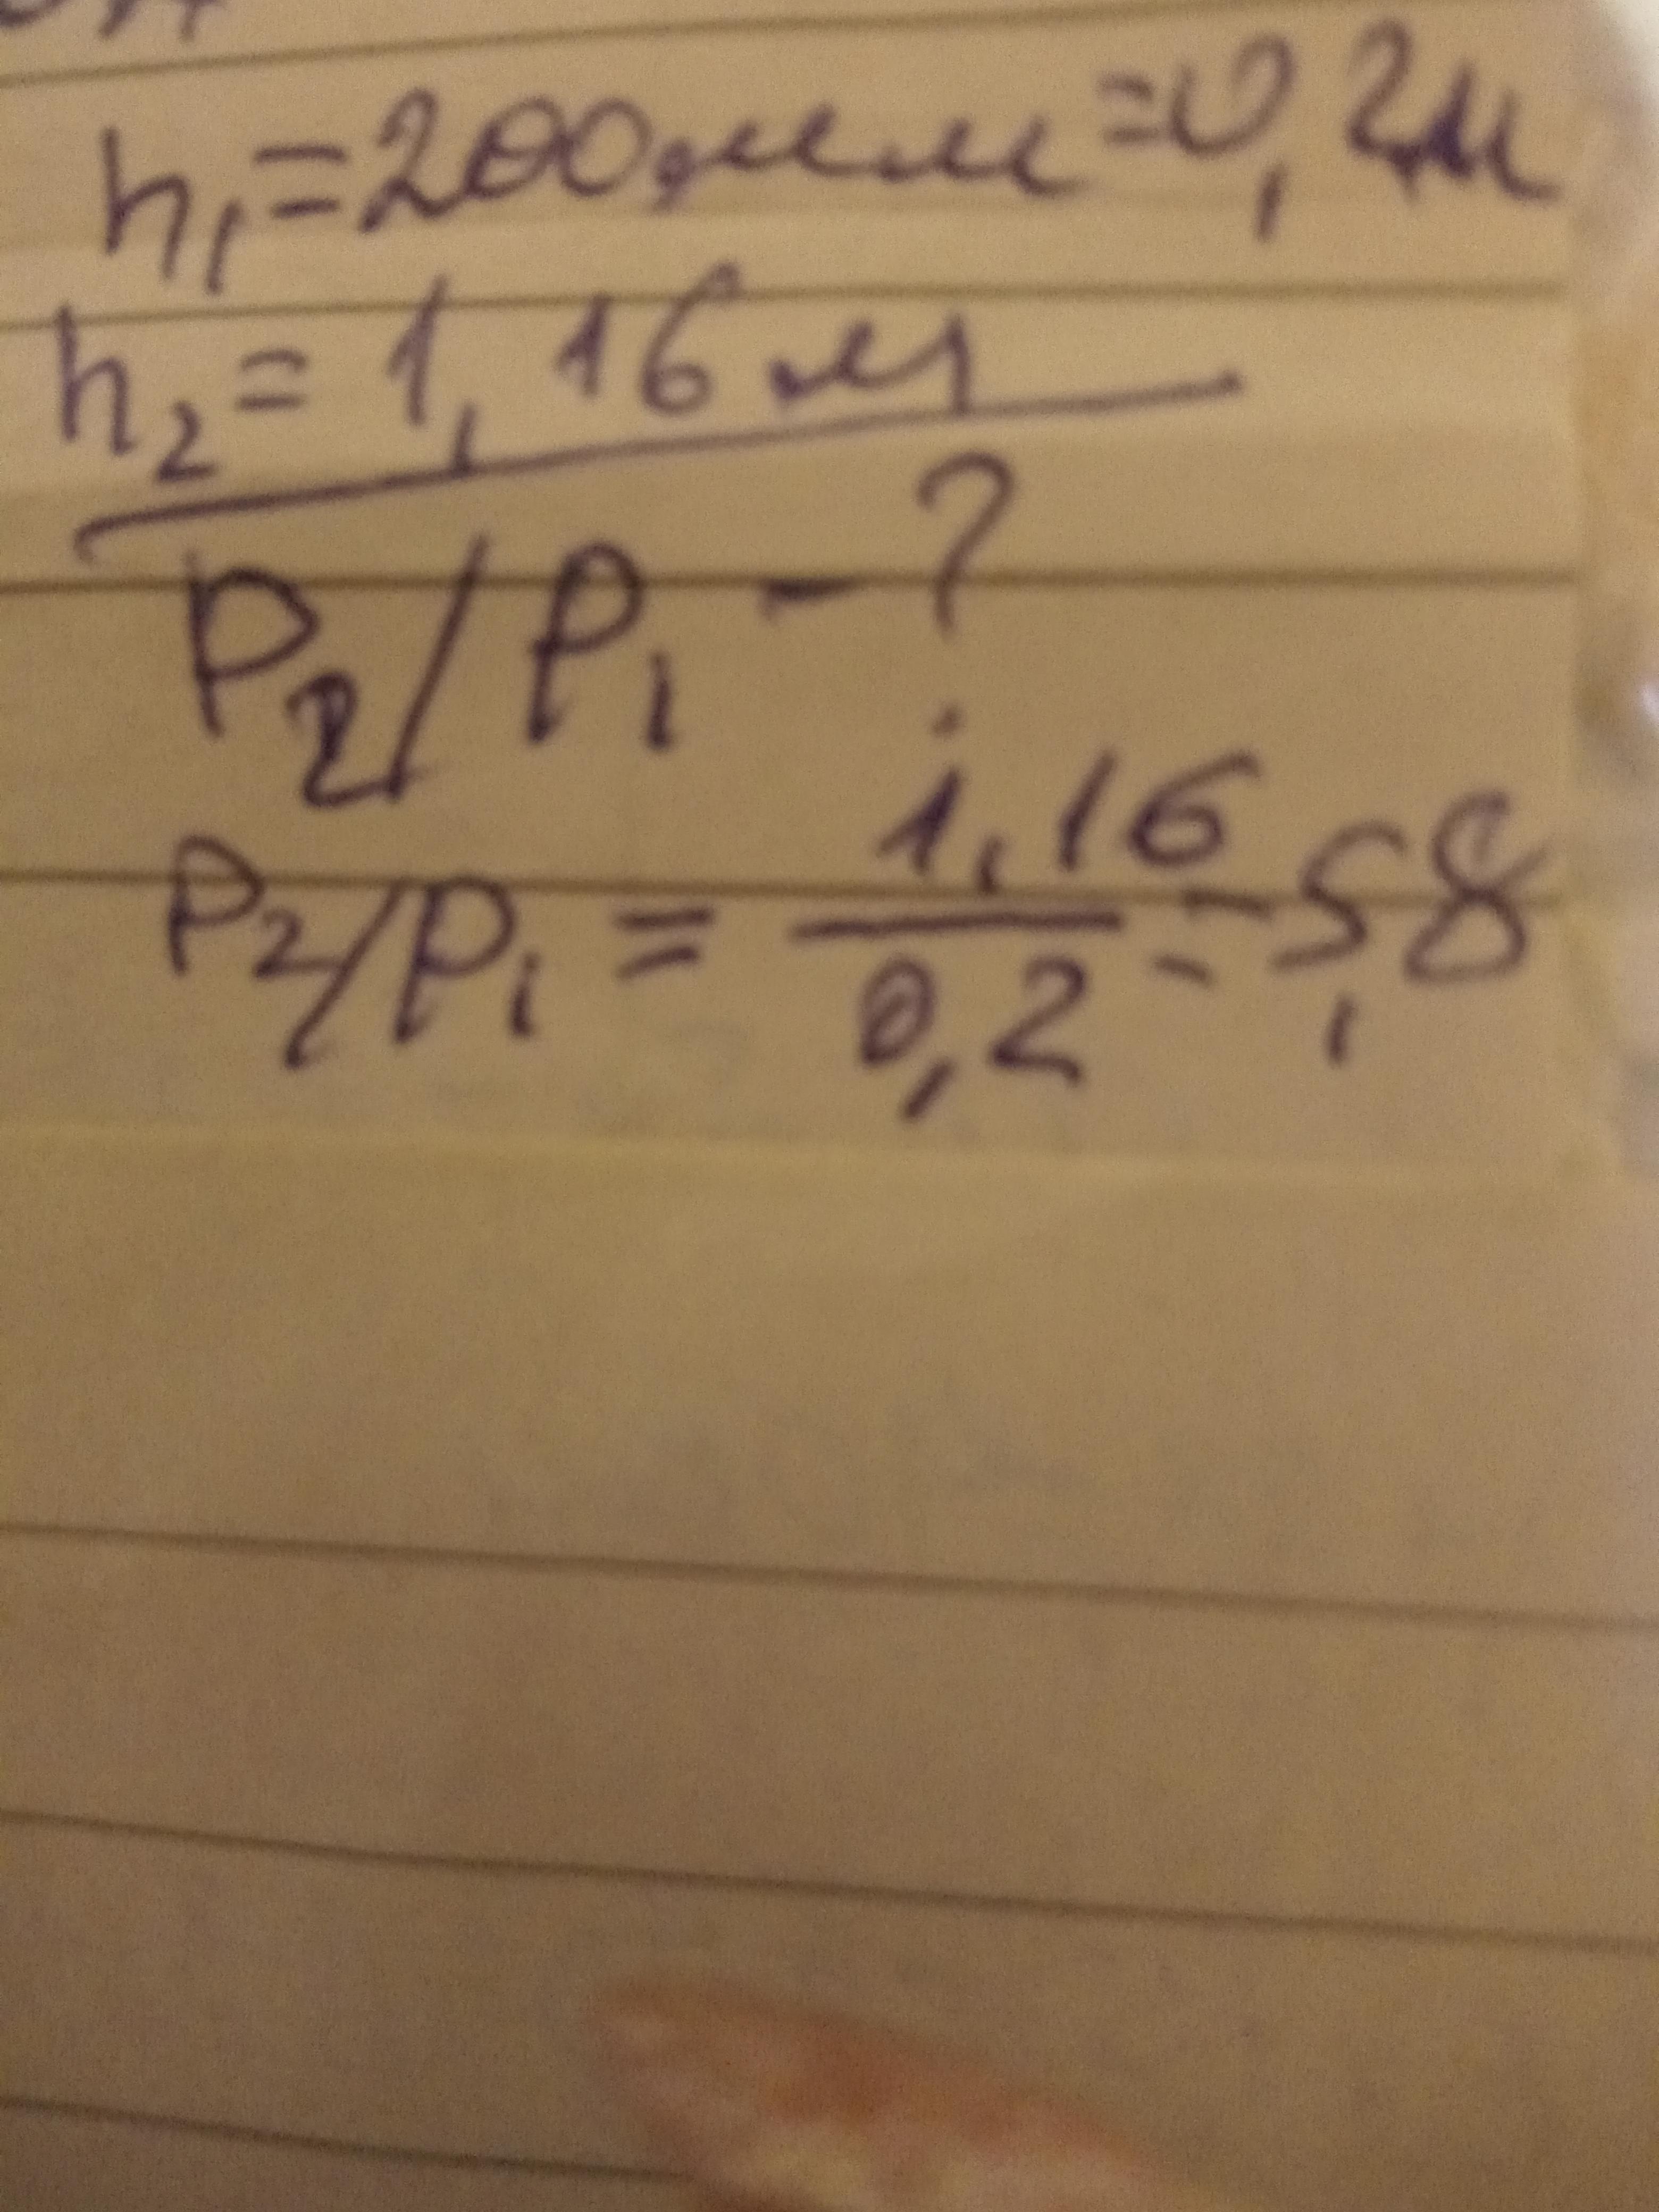 h₁=200мм=0,2м
h₂=1,16м
P₂/P₁-?
P₂/P₁ = 1,16/0,2 = 5,8